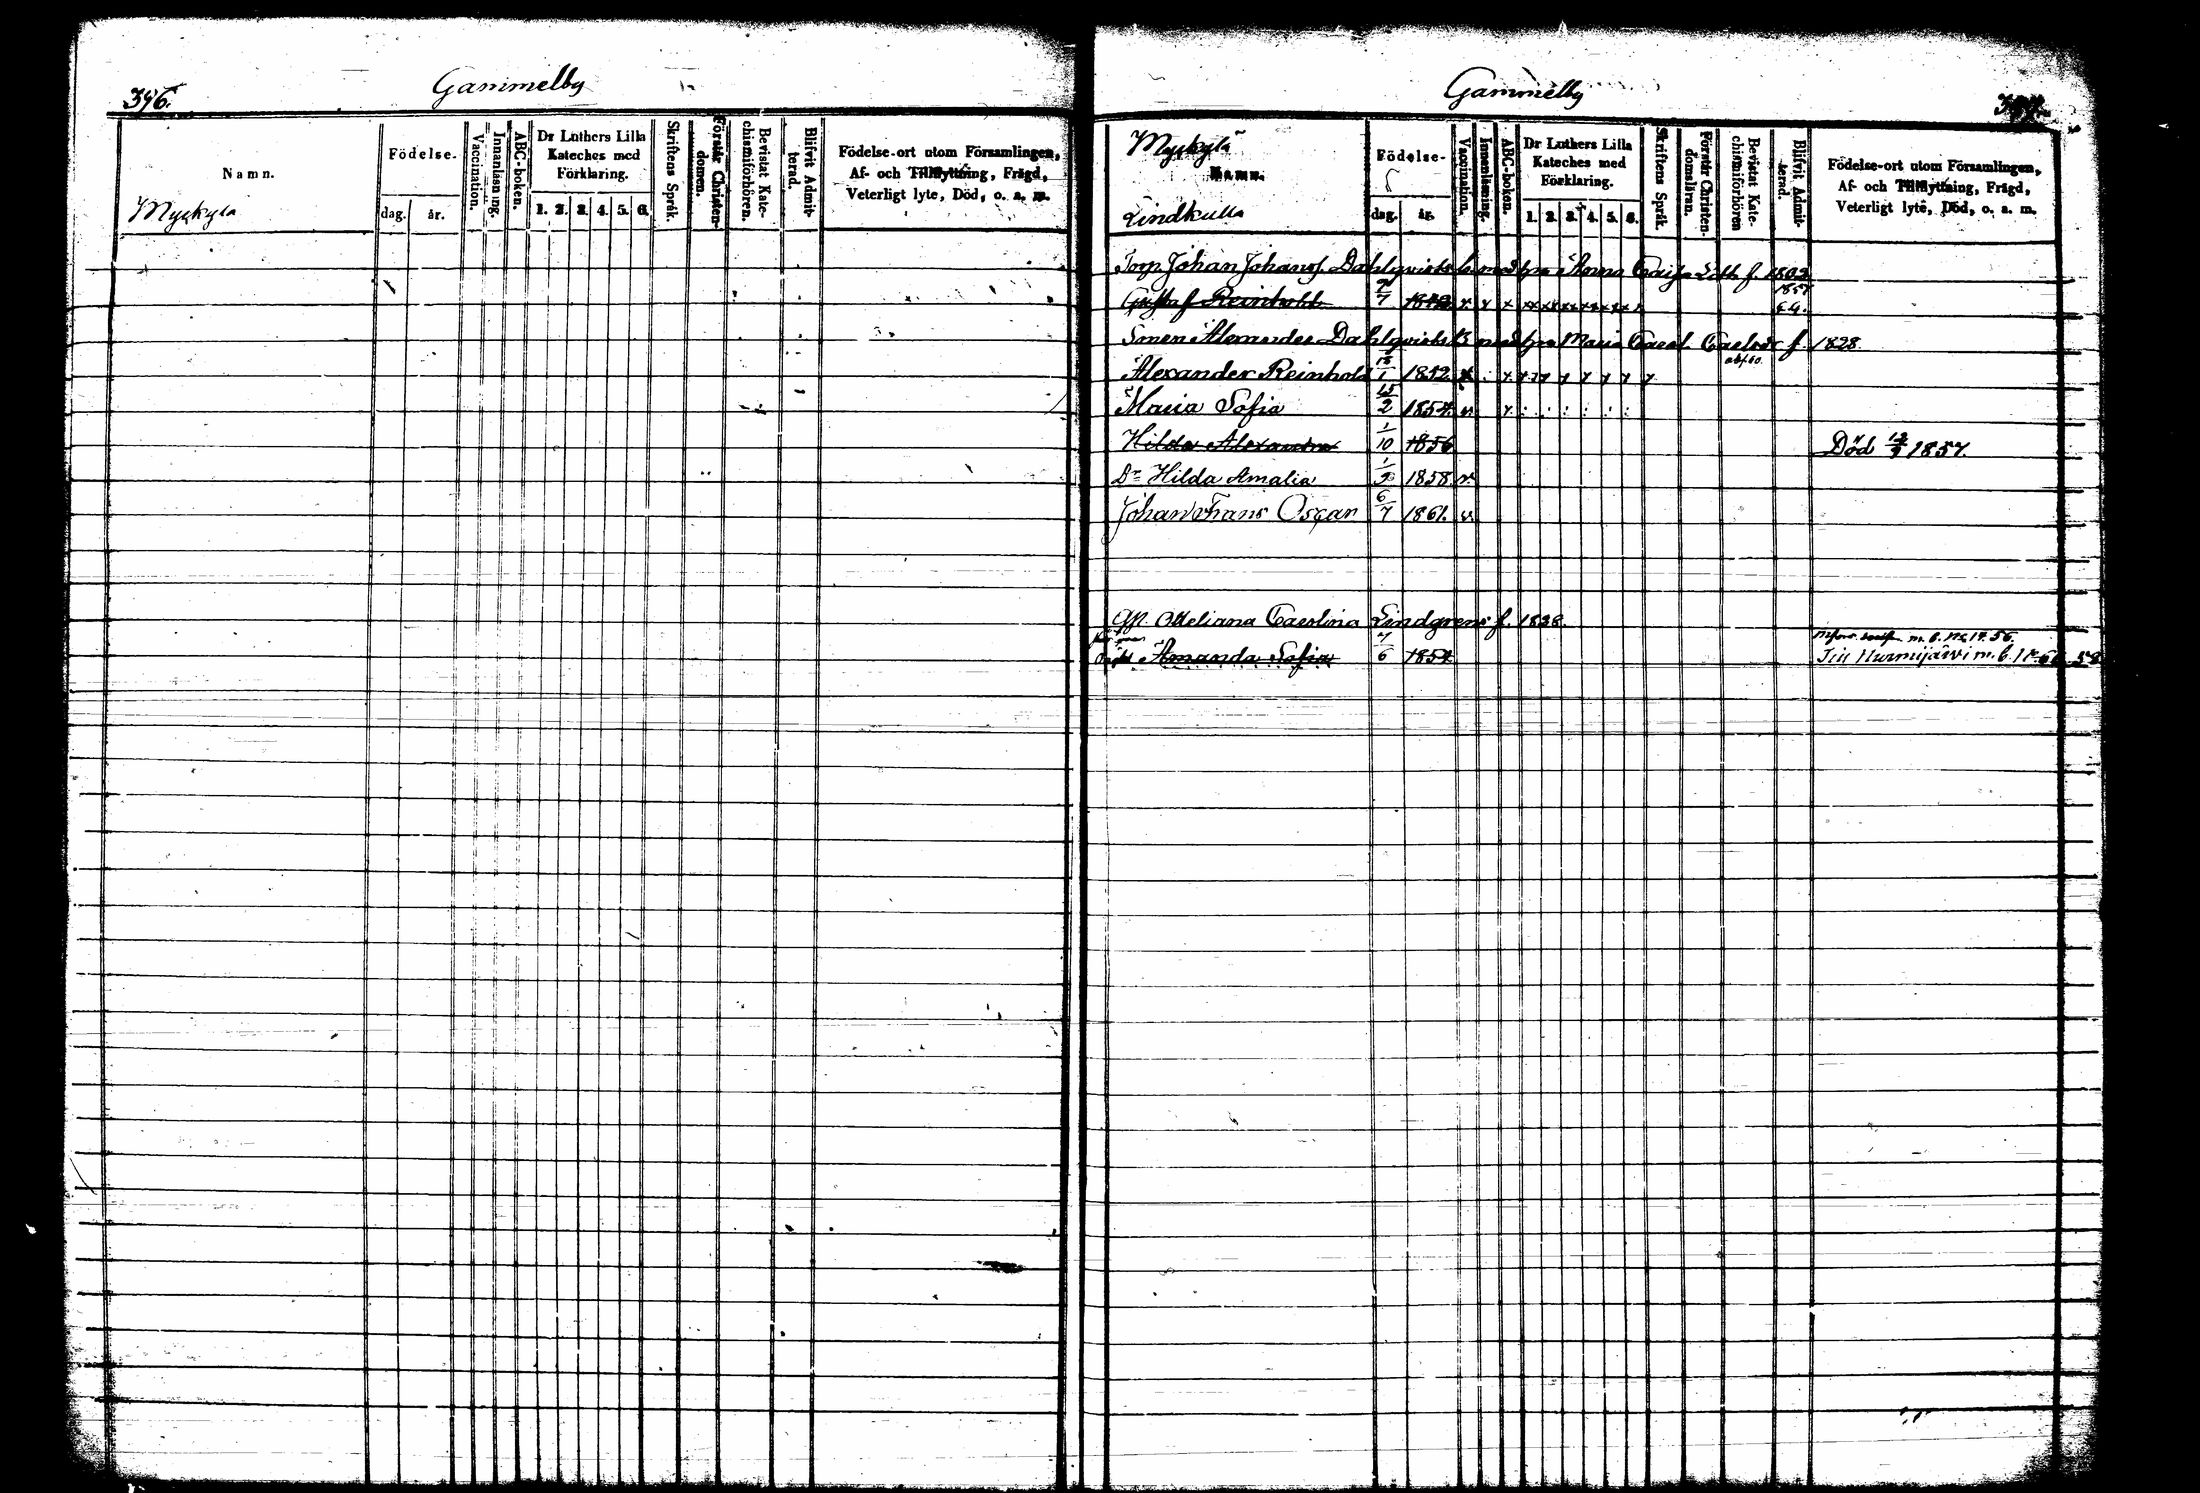 396.
Gammelby
Namn.
Myrkyla
Födelse-
dag. år.
Vaccination.
Innanläsning.
ABC-boken.
Dr Luthers Lilla Kateches med Förklaring.
1. 2. 3. 4. 5. 6.
Skriftens Språk.
Förstår Christendomen.
Bevistat Katechismiförhören.
Blifvit Admitterad.
Födelse-ort utom Församlingen,
Af- och Tillflyttning, Frägd,
Veterligt lyte, Död, o. a. m.
Gammelby
397.
Myrkylä
Namn.
Lindkulla
Födelse-
dag. år.
Vaccination.
Innanläsning.
ABC-boken.
Dr Luthers Lilla Kateches med Förklaring.
1. 2. 3. 4. 5. 6.
Skriftens Språk.
Förstår Christendomsläran.
Bevistat Katechismiförhören
Blifvit Admitterad.
Födelse-ort utom Församlingen,
Af- och Tillflyttning, Frägd,
Veterligt lyte, Död, o. a. m.
Torp. Johan Johans. Dahlqvists b. med hru Anna Caisa f. 1802
Gustaf Reinhold 7 x x x 1857
Sonen Alexander Dahlqvists B med hru Maria Carol. Carlsdr f. 1828.
Alexander Reinhold 1 1849
Maria Sofia 15/2 1854. v x
Hilda Alexandra 1/10 1856 Död 1857.
Dr Hilda Amalia 1/9 1858 v
Johan Frans Oscar 6/7 1861. v
Otteliana Carolina Lindgrens f. 1828.
Amanda Sofia 7/6 1854 Till Nurmijärvi m. b.